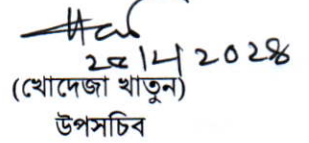 ২৫|৮|২০২৪
(খোদেজা খাতুন)
উপসচিব